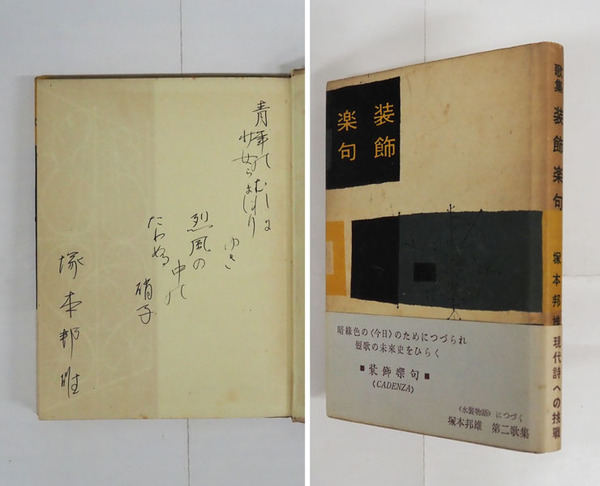 烈風の
中の
たわめる
硝子
塚本邦雄
装飾
楽句
暗緑色の〈今日〉のためにつづられ
短歌の未来史をひらく
■装飾樂句■
〈CADENZA〉
〈水葬物語〉につづく
塚本邦雄 第二歌集
歌集 装飾楽句 塚本邦雄
現代詩への挑戦